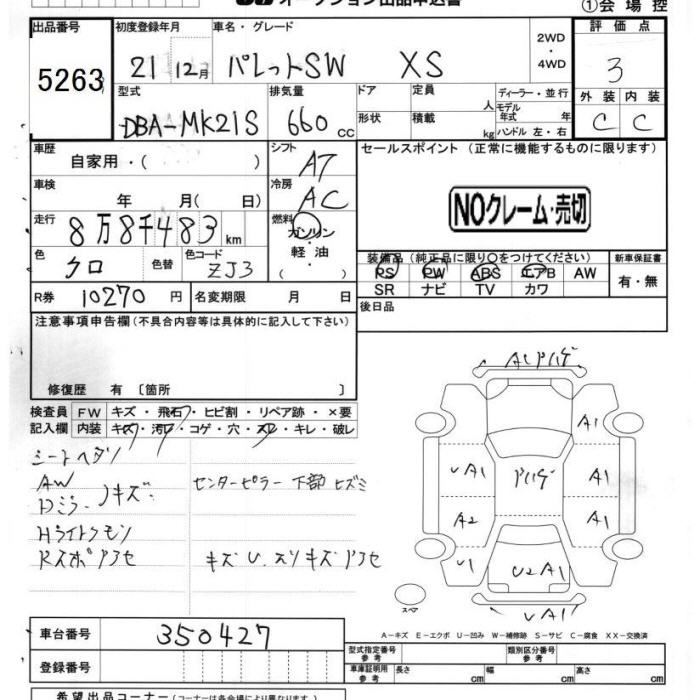 オークション出品申込書
①会場控
出品番号 初度登録年月 車名・グレード 2WD ・ 4WD 評価点
5263 21 12月 パレットSW XS 3
型式 排気量 ドア 定員 人 ディーラー・並行 外装 内装
DBA-MK21S 660 cc 形状 積載 kg モデル年式 年 ハンドル 左・右 C C
車歴 自家用・( ) シフト AT セールスポイント (正常に機能するものに限ります)
車検 年 月( 日) 冷房 AC NOクレーム・売切
走行 8万8千483 km 燃料 ガソリン・軽油・( )
色 クロ 色替 色コード ZJ3
装備品(純正品に限り○をつけてください) 新車保証書
PS PW ABS エアB AW 有・無
SR ナビ TV カワ
R券 10270 円 名変期限 月 日 後日品
注意事項申告欄(不具合内容等は具体的に記入して下さい)
修復歴 有 〔箇所 〕
検査員 FW キズ・飛石・ヒビ割・リペア跡・×要
記入欄 内装 キズ・汚れ・コゲ・穴・スレ・キレ・破レ
シートヘタリ
AW
Dミラー キズ センターピラー 下部 ヒズミ
Hライトクモリ
キズ U.スリキズ
A1
UA1 A1
A2 A1
U1 U2 A1
スペア UA1
A-キズ E-エクボ U-凹み W-補修跡 S-サビ C-腐食 XX-交換済
車台番号 350427 型式指定番号 参考 類別区分番号 参考
登録番号 車庫証明用 参考 長さ cm 幅 cm 高さ cm
希望出品コーナー(コーナーは各会場により異なります)